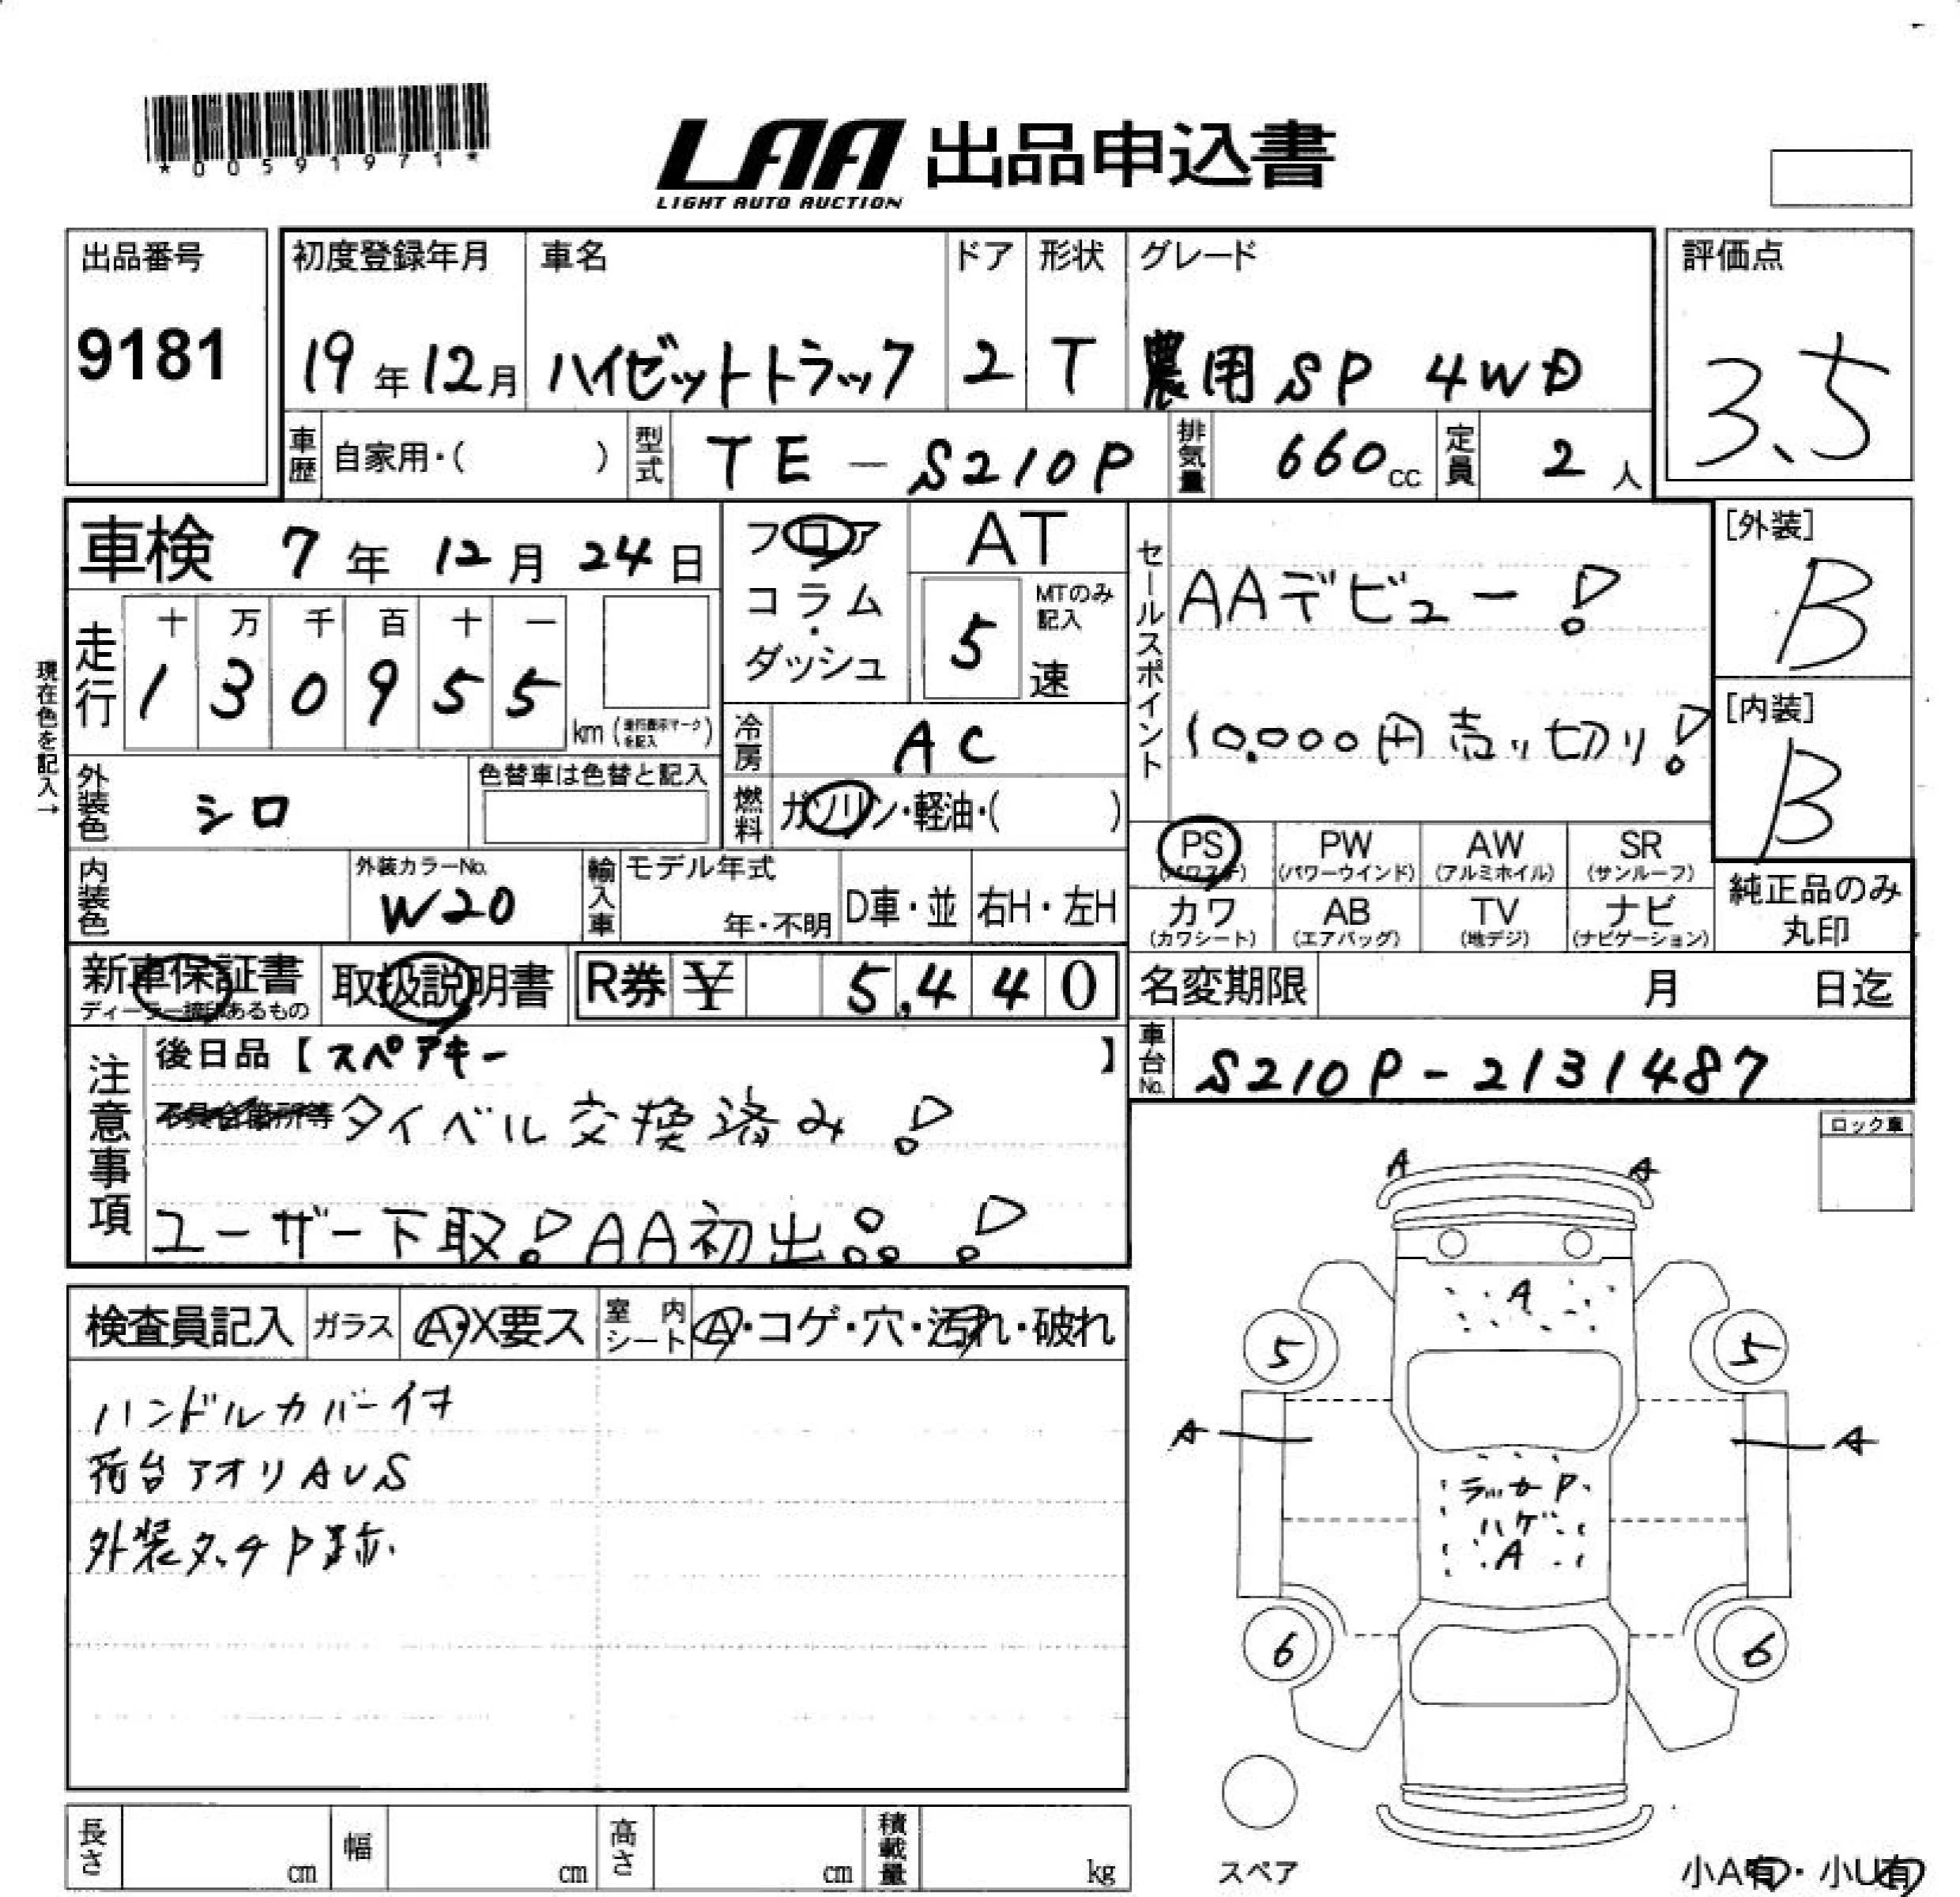 *00591971*
LAA 出品申込書
LIGHT AUTO AUCTION
出品番号
9181
初度登録年月 車名 ドア 形状 グレード
19年12月 ハイゼットトラック 2 T 農用SP 4WD
評価点
3.5
車歴 自家用・( ) 型式 TE-S210P 排気量 660cc 定員 2人
車検 7年 12月 24日
フロア
コラム
・
ダッシュ
AT
MTのみ記入
5速
セールスポイント
AAデビュー!
10,000円売り切り!
[外装]
B
[内装]
B
現在色を記入→
走行
十 万 千 百 十 一
1 3 0 9 5 5
km (走行表示マークを記入)
冷房 AC
燃料 ガソリン・軽油・( )
外装色 シロ
色替車は色替と記入
PS PW AW SR
(パワステ) (パワーウインド) (アルミホイル) (サンルーフ)
カワ AB TV ナビ
(カワシート) (エアバッグ) (地デジ) (ナビゲーション)
純正品のみ
丸印
内装色
外装カラーNo.
W20
輸入車
モデル年式
年・不明
D車・並 右H・左H
新車保証書
取扱説明書
R券 ¥ 5,440
名変期限 月 日迄
車台No. S210P-2131487
注意事項
後日品【スペアキー 】
不具合箇所等 タイベル交換済み!
ユーザー下取!AA初出品!
ロック車
検査員記入 ガラス A・X要ス 室内シート A・コゲ・穴・汚れ・破れ
ハンドルカバー付
荷台アオリAUS
外装タッチP跡.
A A
A
5 5
A A
ラッカーP.
ハゲ.
A
6 6
スペア
長さ cm 幅 cm 高さ cm 積載量 kg
小A有・小U有